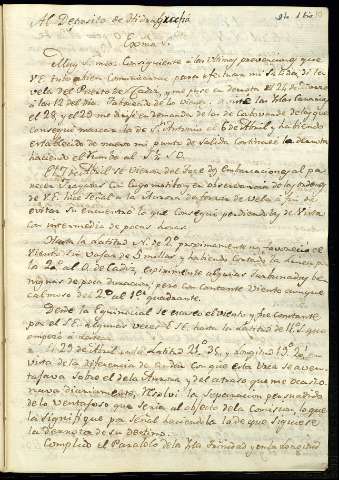 Al Deposito de Hidrografia
Exmo. S.
Muy S. mio: Consiguiente a las ultimas prevenciones que
V.E. tubo á bien Comunicarme para efectuar mi Salida di la
vela del Puerto de Cadiz, y me puse en derrota el 24 de
a las 12 del dia. las Islas Canarias
el 28, y el 29 me dirijí en demanda de las de Caboverde de las que
conseguí marcar la de S. Antonio el 6 de Abril y habiendo
establecido de nuevo mi punto de Salida continué la derrota
haciendo el rumbo al S.
El 7 de Abril se vieron del Tope dos Embarcaciones al pa-
recer Fragatas en cuyo motibo y en observancia de las ordenes
de V.E. hice Señal a la Aurora de forzar de vela á fin de
evitar su encuentro lo que conseguí perdiendolas de Vista
con intermedio de pocas horas.
Hasta la Latitud N. de 2º proximamente me favoreció el
Viento sin vajar de 5 millas y habiendo Cortado la Linea por
los 20 al O. de Cadiz, esperimenté algunas turbonadas be-
nignas de poca duracion, pero con constante Viento aunque
calmoso del 2º al 1º quadrante.
Desde la Equinocial se entabló el viento y fue constante
por el S.E. algunas veces E.S.E. hasta la Latitud de
empezó a
El 29 de Abril en la Latitud 21º 35, y Longitud 19º En
vista de la diferencia de andar Con que esta Urca se aven-
tajava Sobre el de la Aurora y del atraso que me ocasio-
nava diariamente, resolví la Separacion persuadido
de lo ventajoso que seria al objeto de la Comision, lo que
la Signifiqué por Señal haciendola lo de que Siguiese
la derrota de su Destino.
Cumplido el Paralelo de la Isla Trinidad y en la Longitud